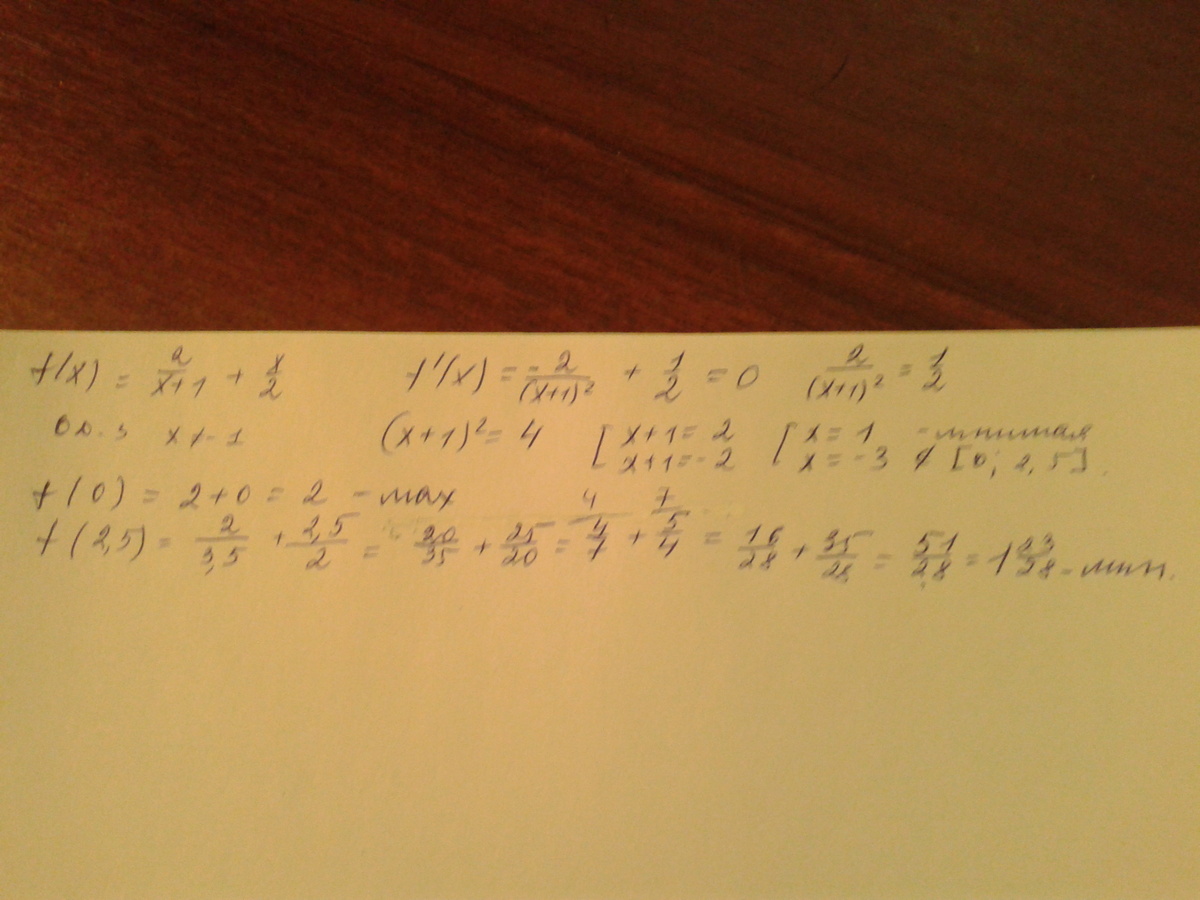 f(x) = 2/(x+1) + x/2    f'(x) = -2/(x+1)² + 1/2 = 0    2/(x+1)² = 1/2
О.О.З x ≠ -1    (x+1)² = 4    [ x+1 = 2    [ x = 1 - мнимая
x+1 = -2    x = -3 ∉ [0; 2,5].
f(0) = 2+0 = 2 - max
f(2,5) = 2/3,5 + 2,5/2 = 20/35 + 25/20 = 4/7 + 5/4 = 16/28 + 35/28 = 51/28 = 1 23/28 - мин.